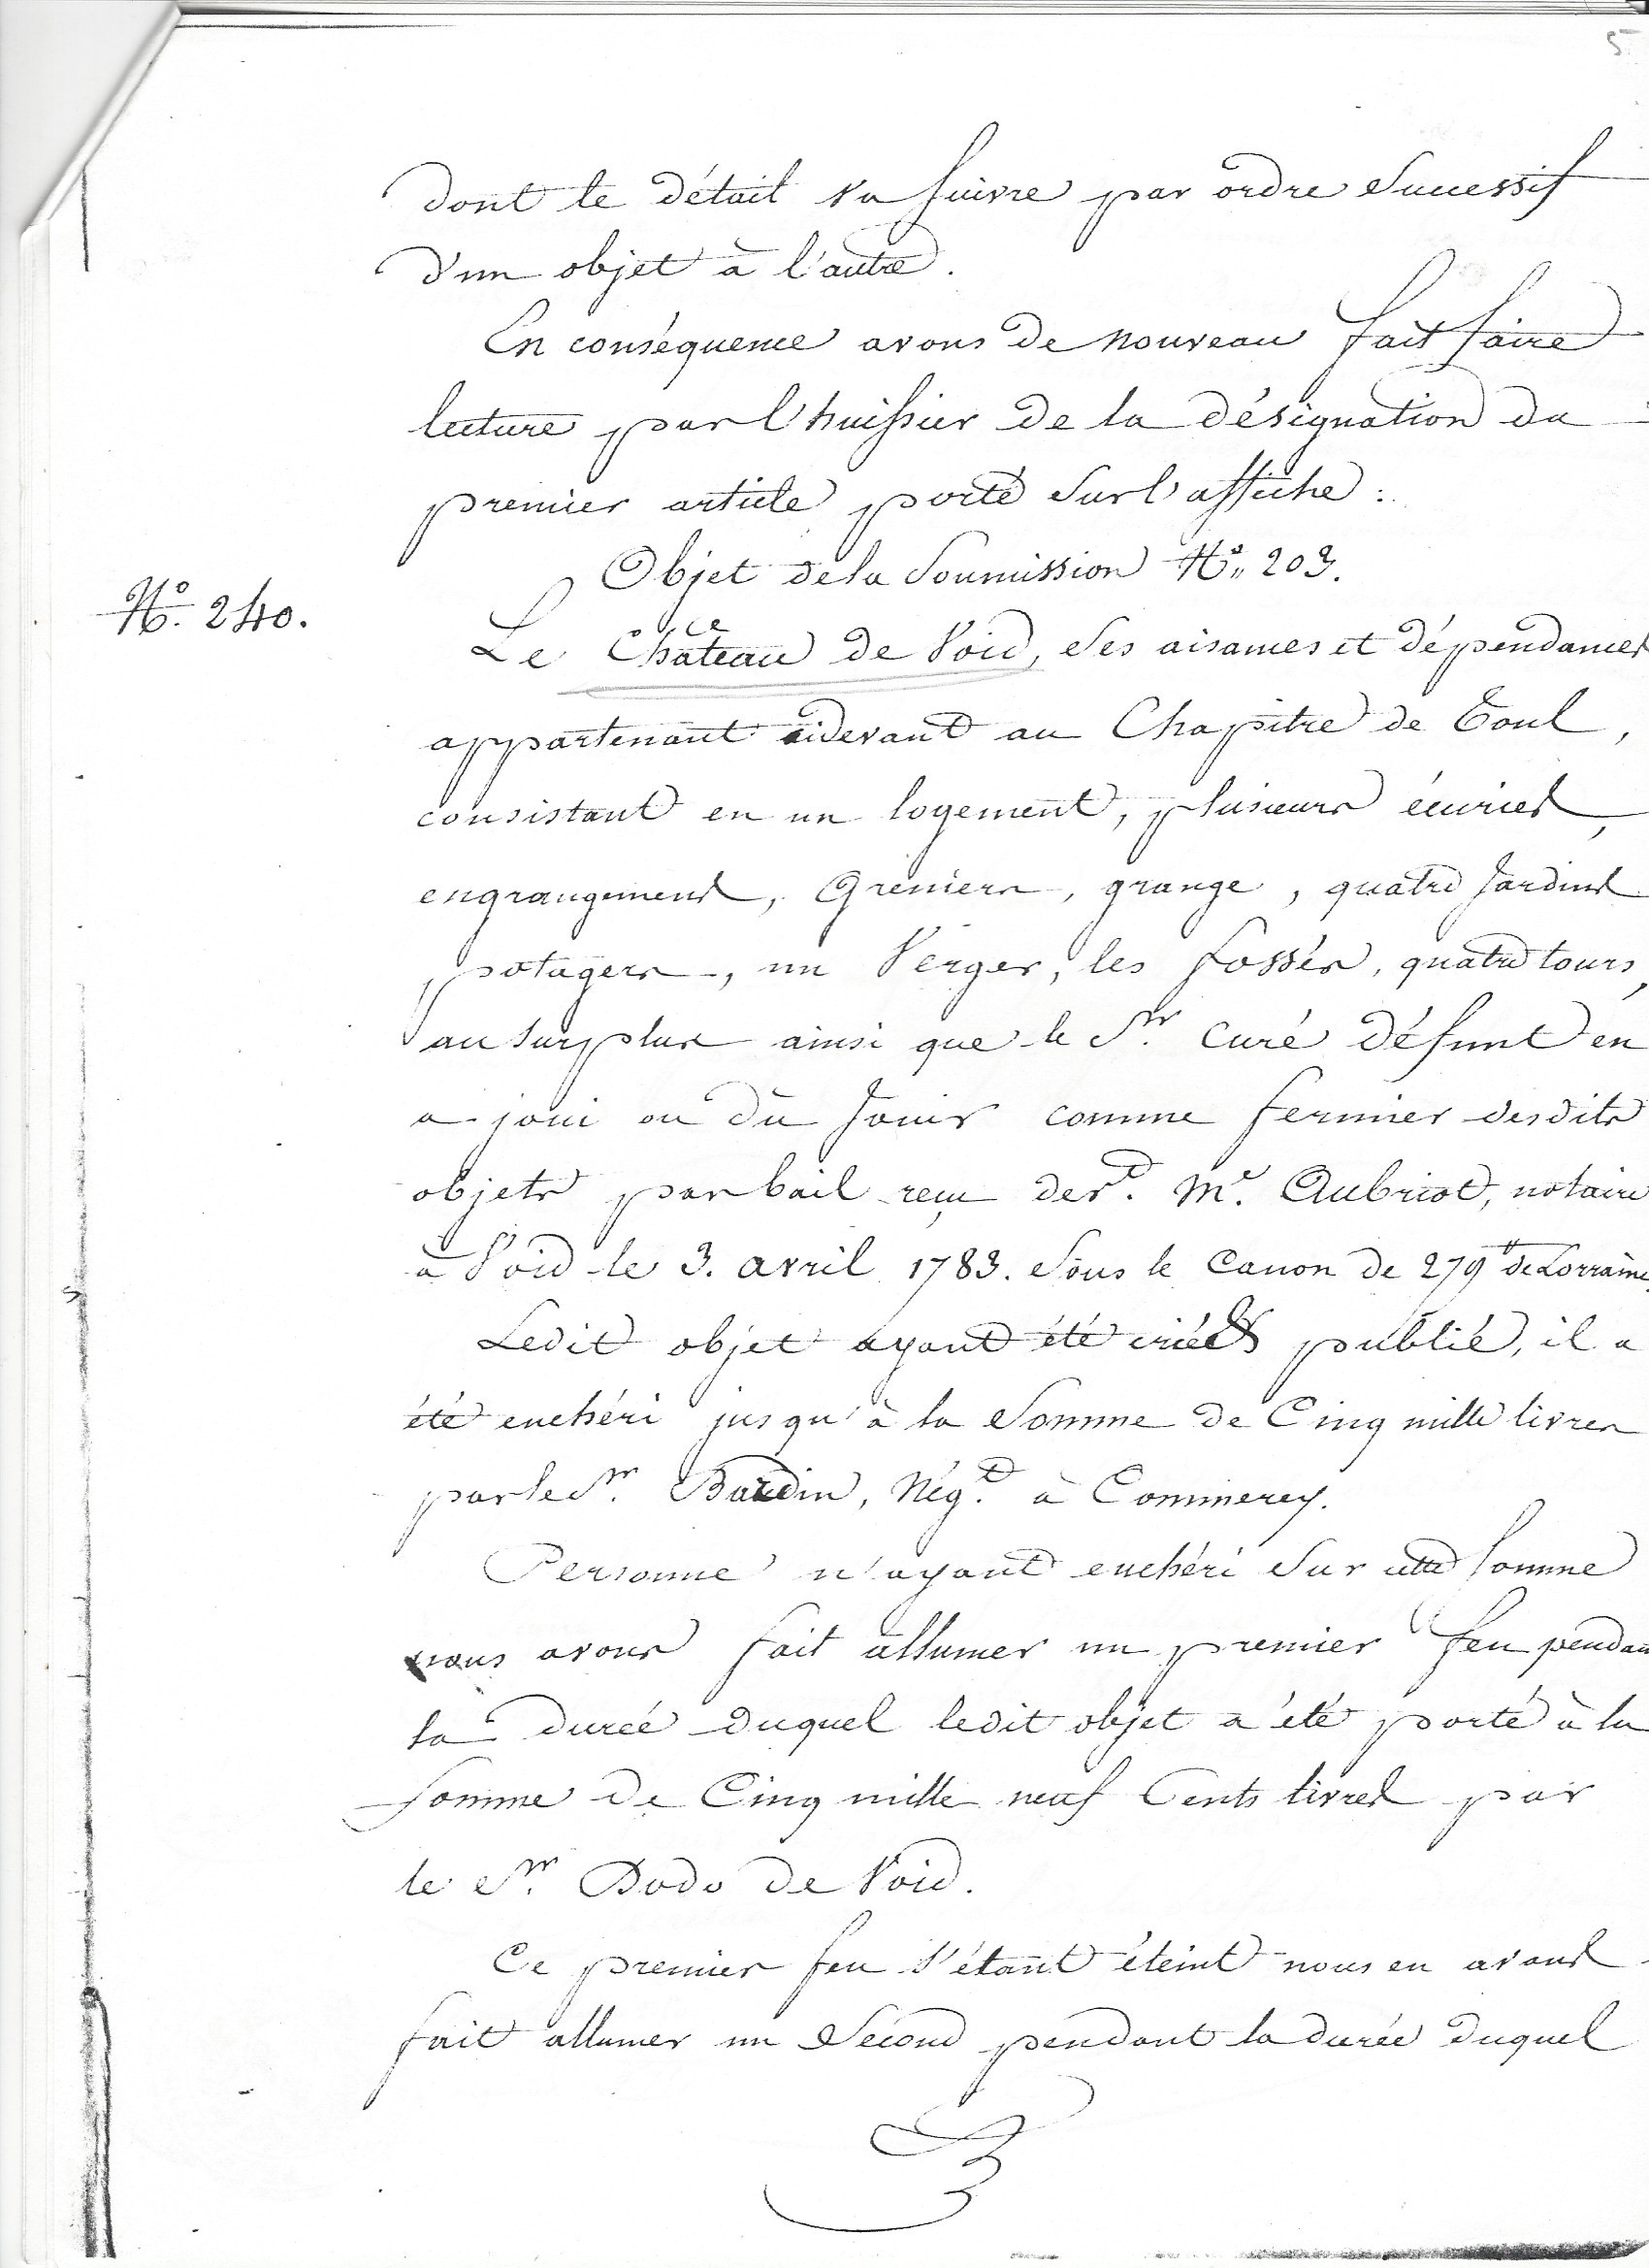 5
dont le détail va suivre par ordre successif
d'un objet à l'autre.
En conséquence avons de nouveau fait faire
lecture par l'huissier de la désignation du
premier article porté sur l'affiche :
Objet de la Soumission N° 203.
N° 240.
Le Château de Void, ses aisances et dépendances
appartenant cidevant au Chapitre de Toul,
consistant en un logement, plusieurs écuries,
engrangemens, Greniers, grange, quatre Jardins
potagers, un Verger, les fossés, quatre tours,
au surplus ainsi que le Sr. Curé défunt en
a joui ou dû Jouir comme fermier desdits
objets par bail reçu devt. Me. Aubriot, notaire
à Void le 3. avril 1783. Sous le Canon de 279 ₶ de Lorraine.
Ledit objet ayant été crié & publié, il a
été enchéri jusqu'à la Somme de Cinq mille livres
par le Sr. Bardin, Négt. à Commercy.
Personne n'ayant enchéri sur cette somme
nous avons fait allumer un premier feu pendant
la durée duquel ledit objet a été porté à la
somme de Cinq mille neuf Cents livres par
le Sr. Dodo de Void.
Ce premier feu s'étant éteint nous en avons
fait allumer un Second pendant la durée duquel